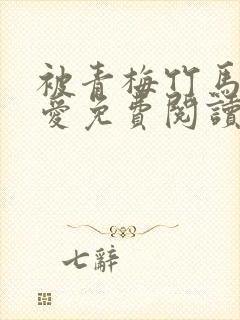 被青梅竹馬
愛免費閱讀
七辭